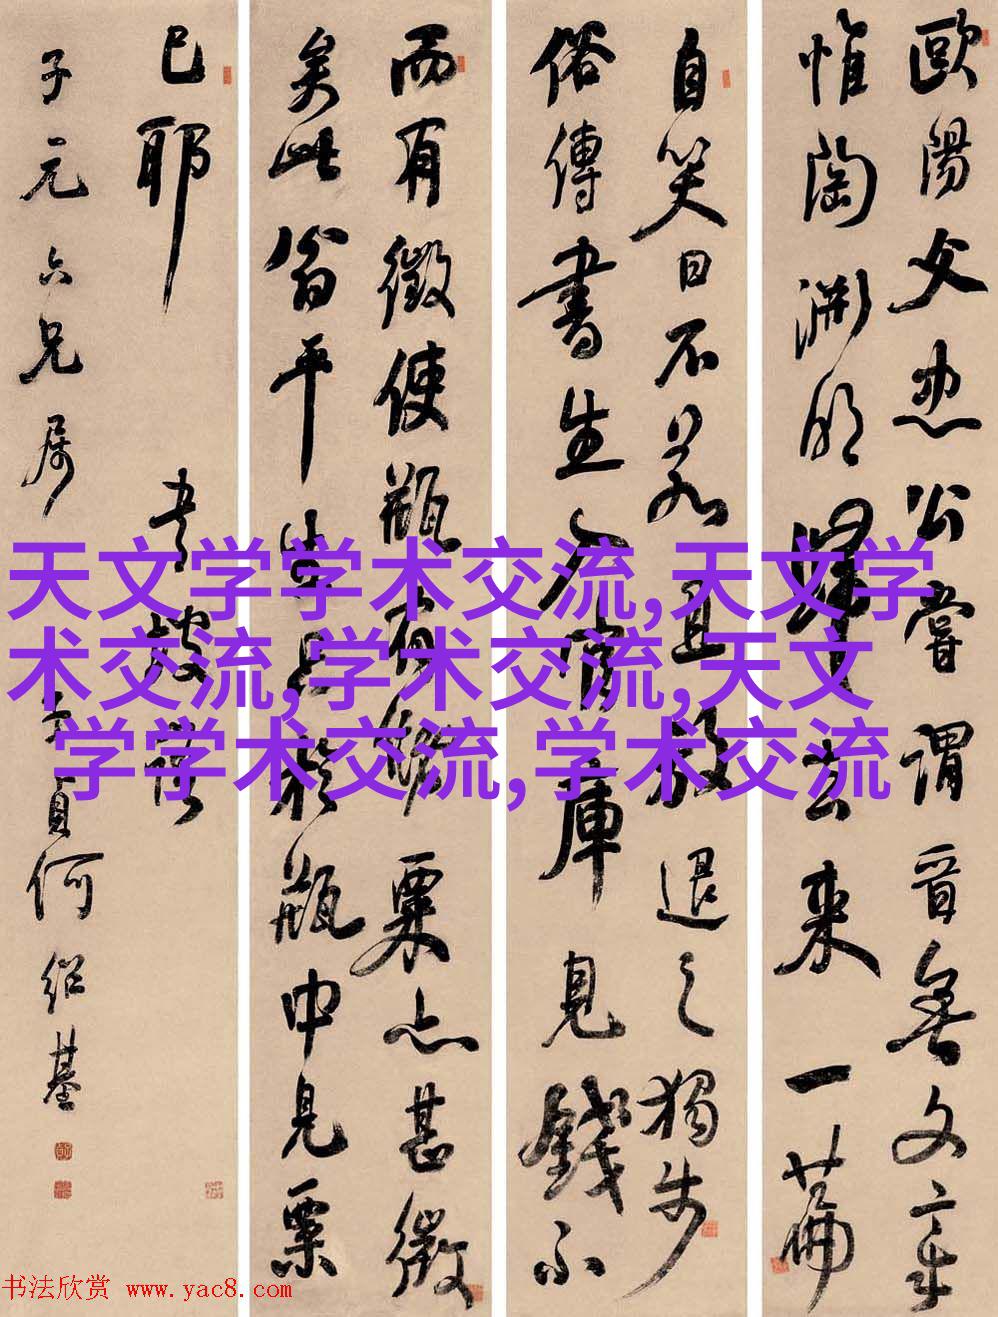 歐陽文忠公嘗謂晉無文章
惟陶渊明歸去来一篇
自笑曰不若且放退之獨步
俗傳書生入官庫見錢不
而有徵使瓶有儲粟亦甚微
矣此翁平生只於瓶中見粟
已耶
坡語
子元六兄属
子貞何紹基
天文学学术交流,天文学
术交流,学术交流,天文
学学术交流,学术交流
书法欣赏 www.yac8.com